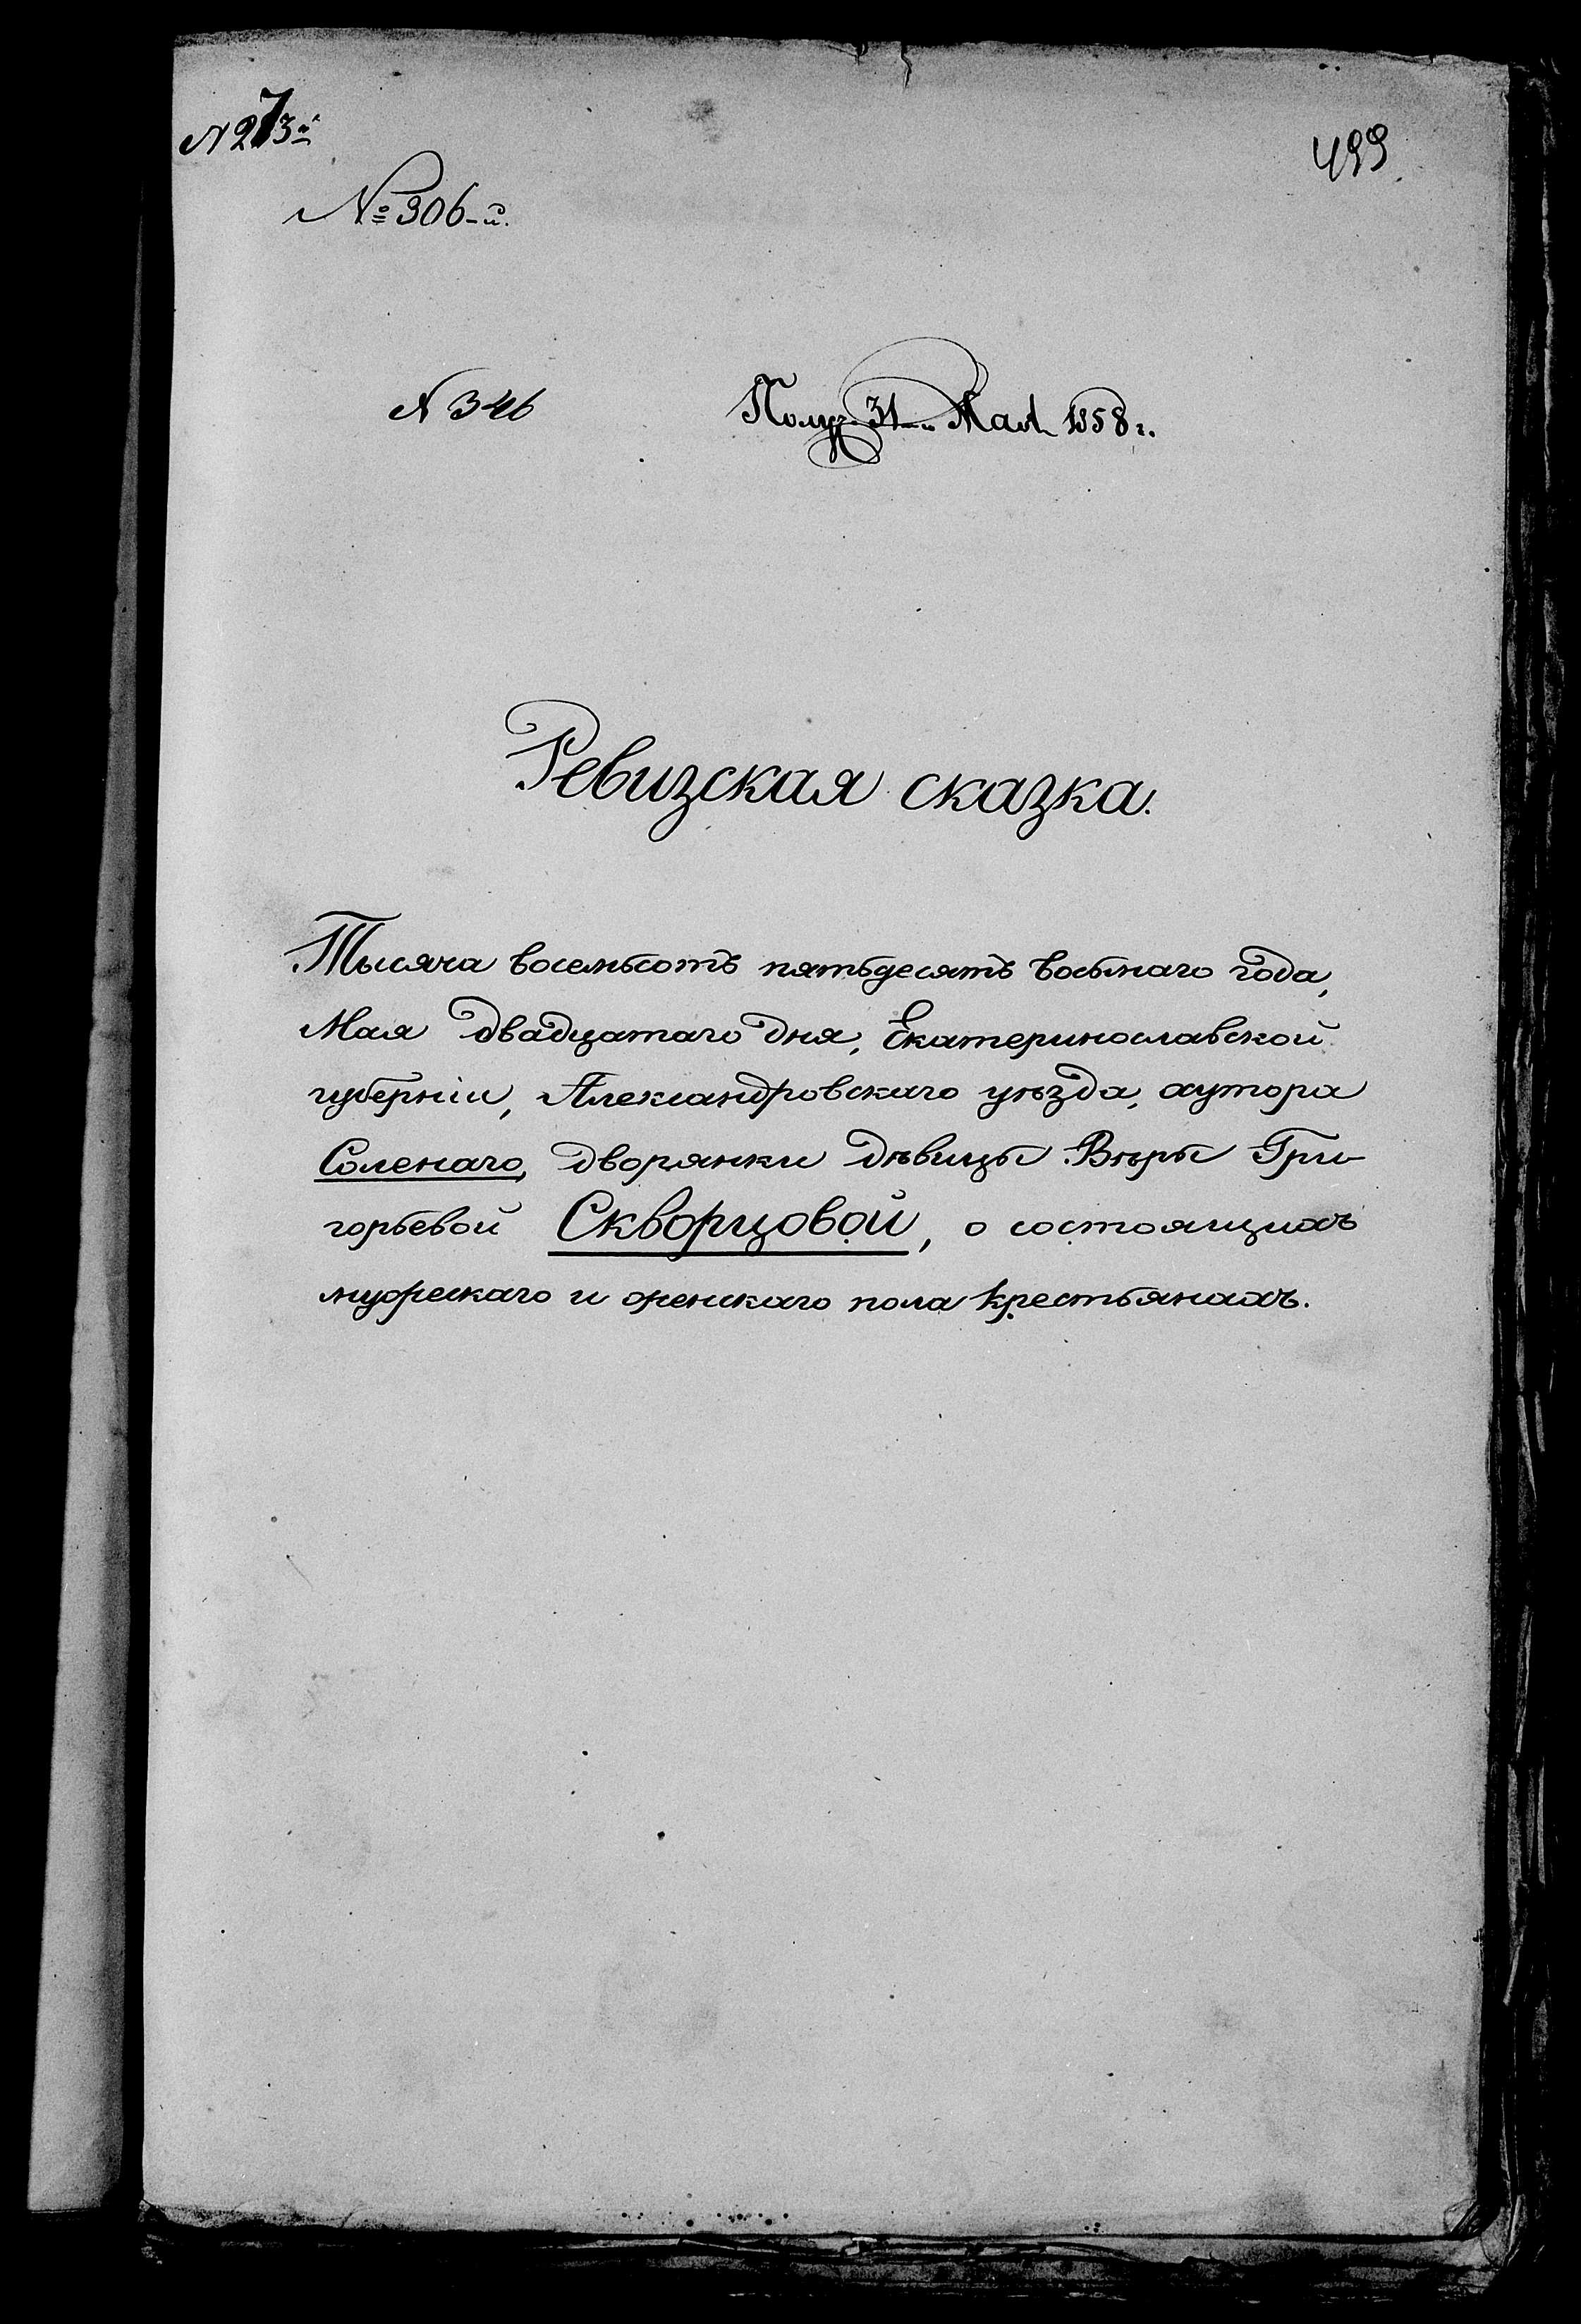 N 273-й
499.
№ 306-й.
N 346
Получ. 31-го Мая 1858 г.
Ревизская сказка.
Тысяча восемьсотъ пятьдесятъ восьмаго года,
Мая двадцатаго дня, Екатеринославской
губерніи, Александровскаго уѣзда, хутора
Соленаго, дворянки дѣвицы Вѣры Гри-
горьевой Скворцовой, о состоящихъ
мужескаго и женскаго пола крестьянахъ.